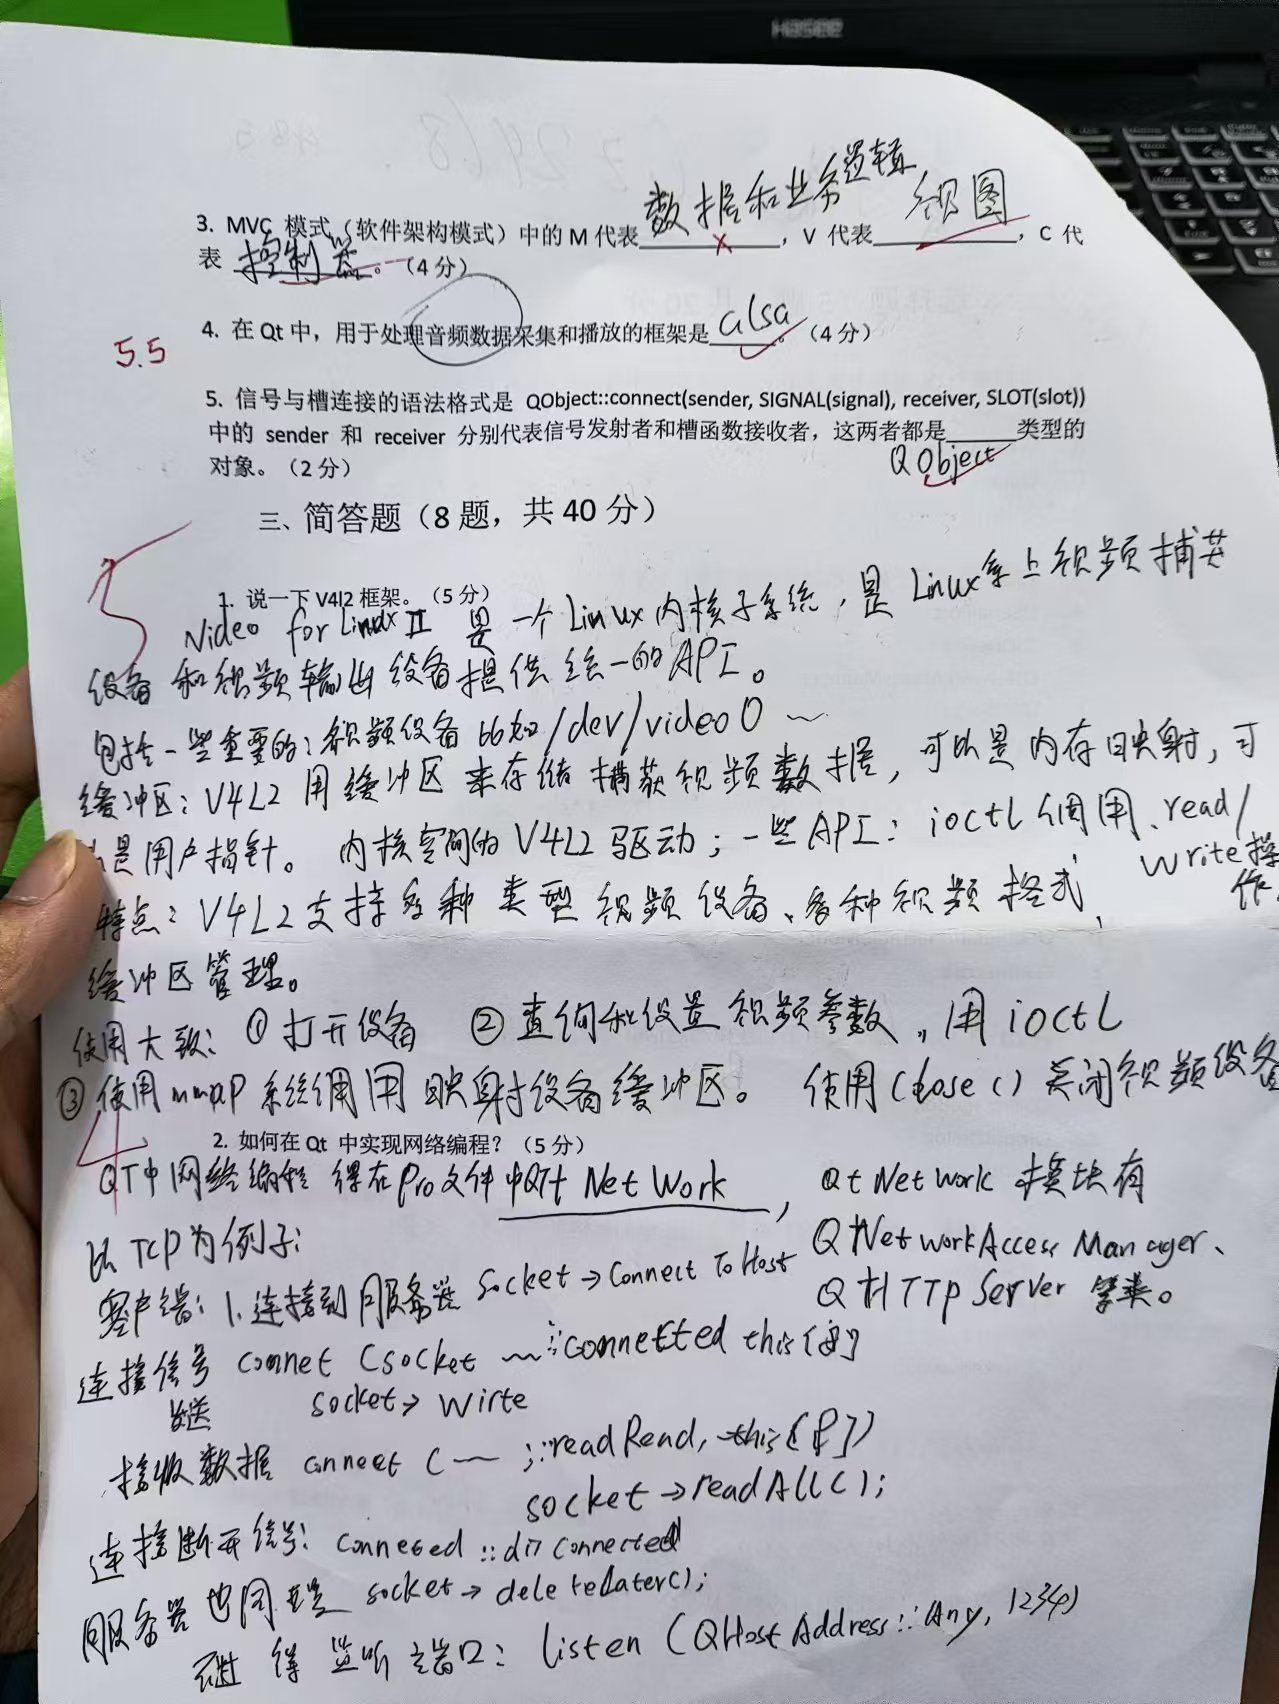 Hasee
数据和业务逻辑 视图
3. MVC 模式（软件架构模式）中的 M 代表________，V 代表________，C 代
表 控制器。（4 分）
4. 在 Qt 中，用于处理音频数据采集和播放的框架是 alsa。（4 分）
5.5
5. 信号与槽连接的语法格式是 QObject::connect(sender, SIGNAL(signal), receiver, SLOT(slot))
中的 sender 和 receiver 分别代表信号发射者和槽函数接收者，这两者都是______类型的
对象。（2 分） QObject
三、简答题（8 题，共 40 分）
1. 说一下 V4l2 框架。（5 分）
Video for Linux II 是一个Linux内核子系统，是 Linux系上视频捕获
设备和视频输出设备提供统一的API。
包括一些重要的：视频设备 比如/dev/video0 ～
缓冲区：V4L2 用缓冲区来存储捕获视频数据，可以是内存映射，可
以是用户指针。 内核空间的V4L2驱动；一些API：ioctl调用、read/
write操作。
特点：V4L2支持多种类型视频设备、多种视频格式、
缓冲区管理。
使用大致：①打开设备 ②查询和设置视频参数，用ioctl
③使用mmap系统调用映射设备缓冲区。 使用close()关闭视频设备
2. 如何在 Qt 中实现网络编程？（5 分）
4
QT中网络编程 得在Pro文件中Qt+ NetWork， Qt NetWork 模块有
以TCP为例子： QtNetworkAccess Manager、
QtHTTpServer 等类。
客户端：1.连接到服务器 Socket→Connect To Host
连接信号 connet (socket ～::connetted this[]
发送 socket→wirte
接收数据 connect (～ ::readRead, this[]{})
socket→readAll();
连接断开信号： connested ::disconnected
服务器也同理 socket→deletelater();
得监听端口： listen (QHostAddress::Any, 1234)